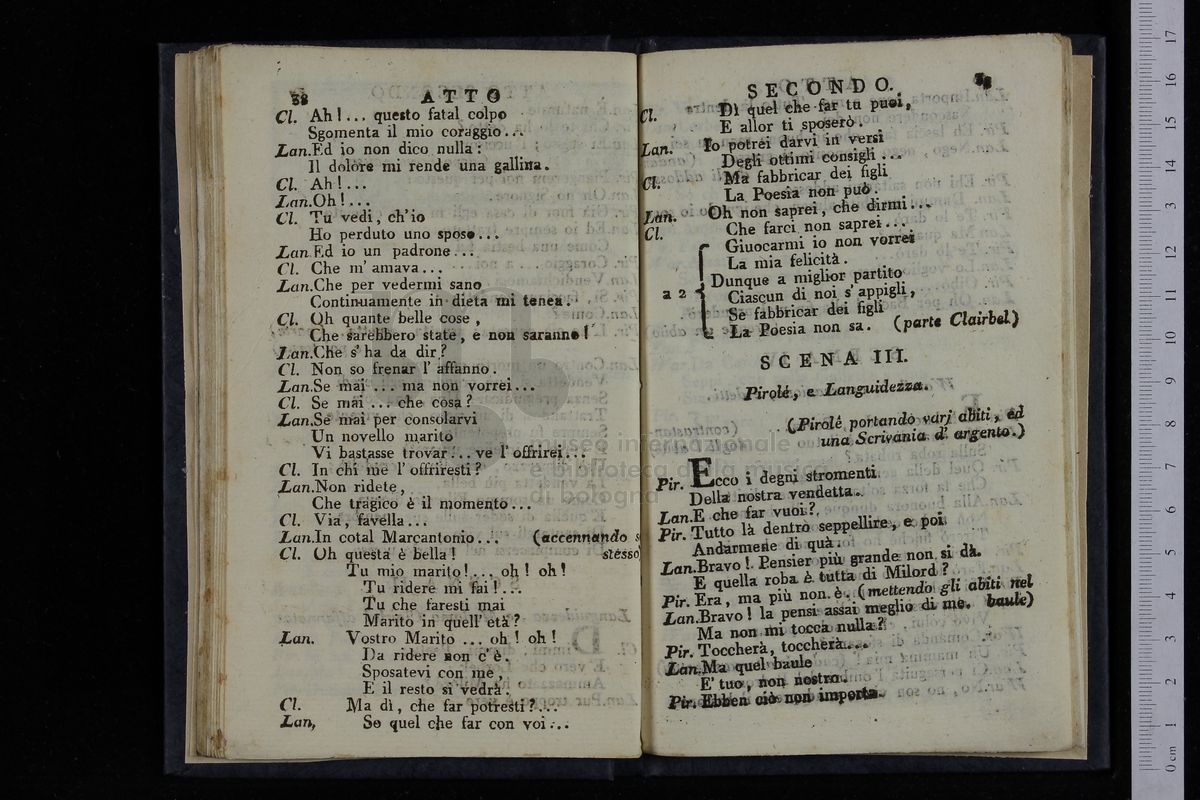 38 ATTO
Cl. Ah!... questo fatal colpo
Sgomenta il mio coraggio...
Lan.Ed io non dico nulla:
Il dolore mi rende una gallina.
Cl. Ah!...
Lan.Oh!...
Cl. Tu vedi, ch'io
Ho perduto uno sposo...
Lan.Ed io un padrone...
Cl. Che m'amava...
Lan.Che per vedermi sano
Continuamente in dieta mi tenea.
Cl. Oh quante belle cose,
Che sarebbero state, e non saranno!
Lan.Che s'ha da dir?
Cl. Non so frenar l'affanno.
Lan.Se mai ... ma non vorrei...
Cl. Se mai ... che cosa?
Lan.Se mai per consolarvi
Un novello marito
Vi bastasse trovar... ve l'offrirei...
Cl. In chi me l'offriresti?
Lan.Non ridete,
Che tragico è il momento...
Cl. Via, favella...
Lan.In cotal Marcantonio... (accennando s
Cl. Oh questa è bella! stesso
Tu mio marito!... oh! oh!
Tu ridere mi fai!...
Tu che faresti mai
Marito in quell'età?
Lan. Vostro Marito ... oh! oh!
Da ridere non c'è.
Sposatevi con me,
E il resto si vedrà.
Cl. Ma dì, che far potresti?...
Lan, So quel che far con voi...
SECONDO.
Cl. Dì quel che far tu puoi,
E allor ti sposerò.
Lan. Io potrei darvi in versi
Degli ottimi consigli...
Cl. Ma fabbricar dei figli
La Poesia non può.
Lan. Oh non saprei, che dirmi...
Cl. Che farci non saprei...
Giuocarmi io non vorrei
La mia felicità.
Dunque a miglior partito
a 2 Ciascun di noi s'appigli,
Se fabbricar dei figli
La Poesia non sa. (parte Clairbel)
SCENA III.
Pirolé, e Languidezza.
(Pirolé portando varj abiti, ed
una Scrivania d'argento.)
Pir. Ecco i degni stromenti
Della nostra vendetta.
Lan.E che far vuoi?
Pir. Tutto là dentro seppellire, e poi
Andarmene di quà.
Lan.Bravo! Pensier più grande non si dà.
E quella roba è tutta di Milord?
Pir. Era, ma più non è. (mettendo gli abiti nel
Lan.Bravo! la pensi assai meglio di me. baule)
Ma non mi tocca nulla?
Pir. Toccherà, toccherà...
Lan.Ma quel baule
E' tuo, non nostro.
Pir. Ebben ciò non importa.
museo internazionale
e biblioteca della musica
di bologna
0 cm 1 2 3 4 5 6 7 8 9 10 11 12 13 14 15 16 17